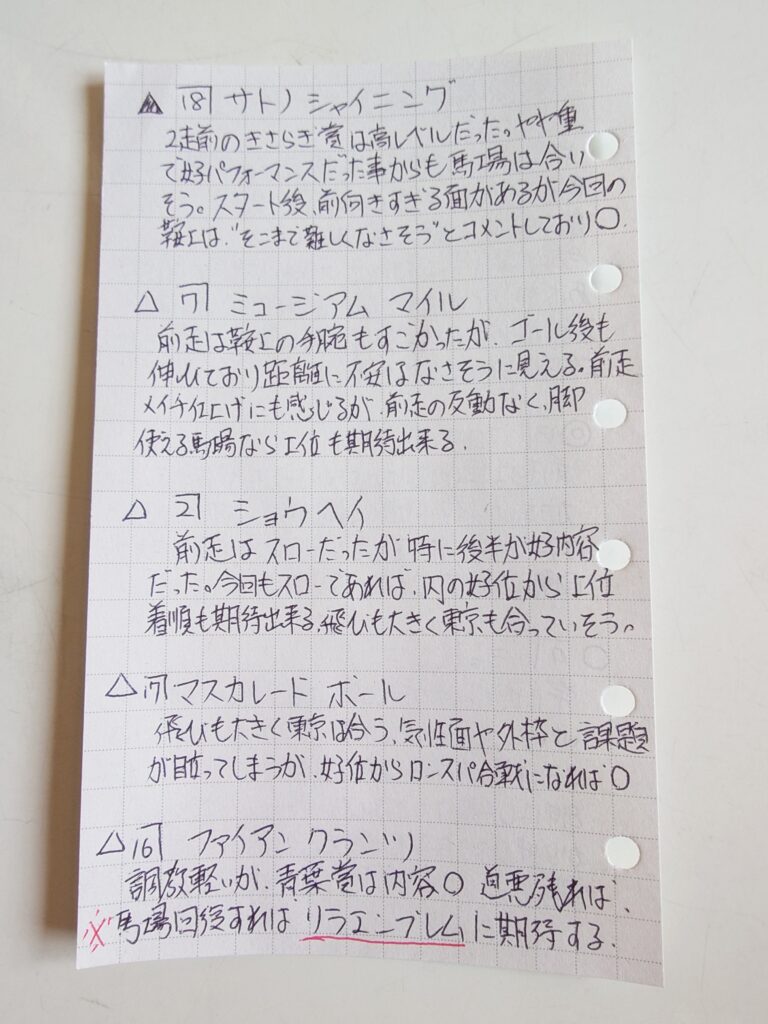 ▲ 18 サトノ シャイニング
2走前のきさらぎ賞は高レベルだった。やや重
で好パフォーマンスだった事からも馬場は合い
そう。スタート後、前向きすぎる面があるが今回の
鞍上は、"そこまで難しくなさそう"とコメントしており○.
△ 7 ミュージアム マイル
前走は鞍上の手腕もすごかったが、ゴール後も
伸びており距離に不安はなさそうに見える。前走
メイチ仕上げにも感じるが、前走の反動なく、脚
使える馬場なら上位も期待出来る.
△ 2 ショウヘイ
前走はスローだったが特に後半が好内容
だった。今回もスローであれば、内の好位から上位
着順も期待出来る、飛びも大きく東京も合っていそう。
△ 17 マスカレード ボール
飛びも大きく東京は合う、気性面や外枠と課題
が目立ってしまうが、好位からロンスパ合戦になれば○
△ 16 ファイアン クランツ
調教軽いが、青葉賞は内容○ 道悪残れば、
※馬場回復すれば リラエンブレムに期待する.